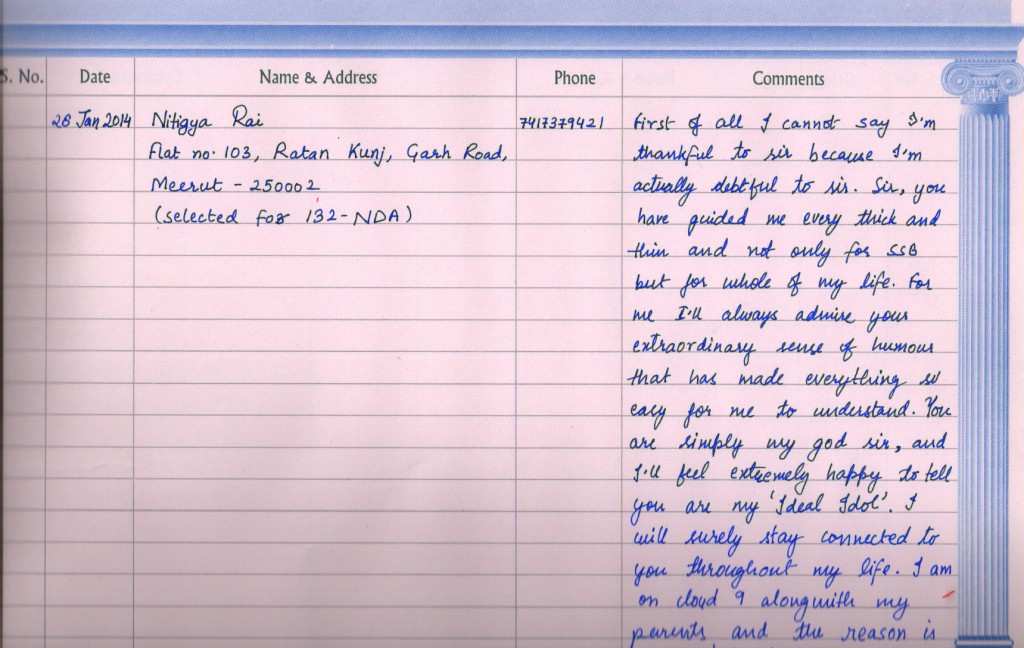 S. No. Date Name & Address Phone Comments
28 Jan 2014 Nitigya Rai 7417379421 first of all I cannot say I'm
Flat no. 103, Ratan Kunj, Garh Road, thankful to sir because I'm
Meerut - 250002 actually debtful to sir. Sir, you
(selected for 132-NDA) have guided me every thick and
thin and not only for SSB
but for whole of my life. For
me I'll always admire your
extraordinary sense of humour
that has made everything so
easy for me to understand. You
are simply my god sir, and
I'll feel extremely happy to tell
you are my 'Ideal Idol'. I
will surely stay connected to
you throughout my life. I am
on cloud 9 alongwith my
parents and the reason is